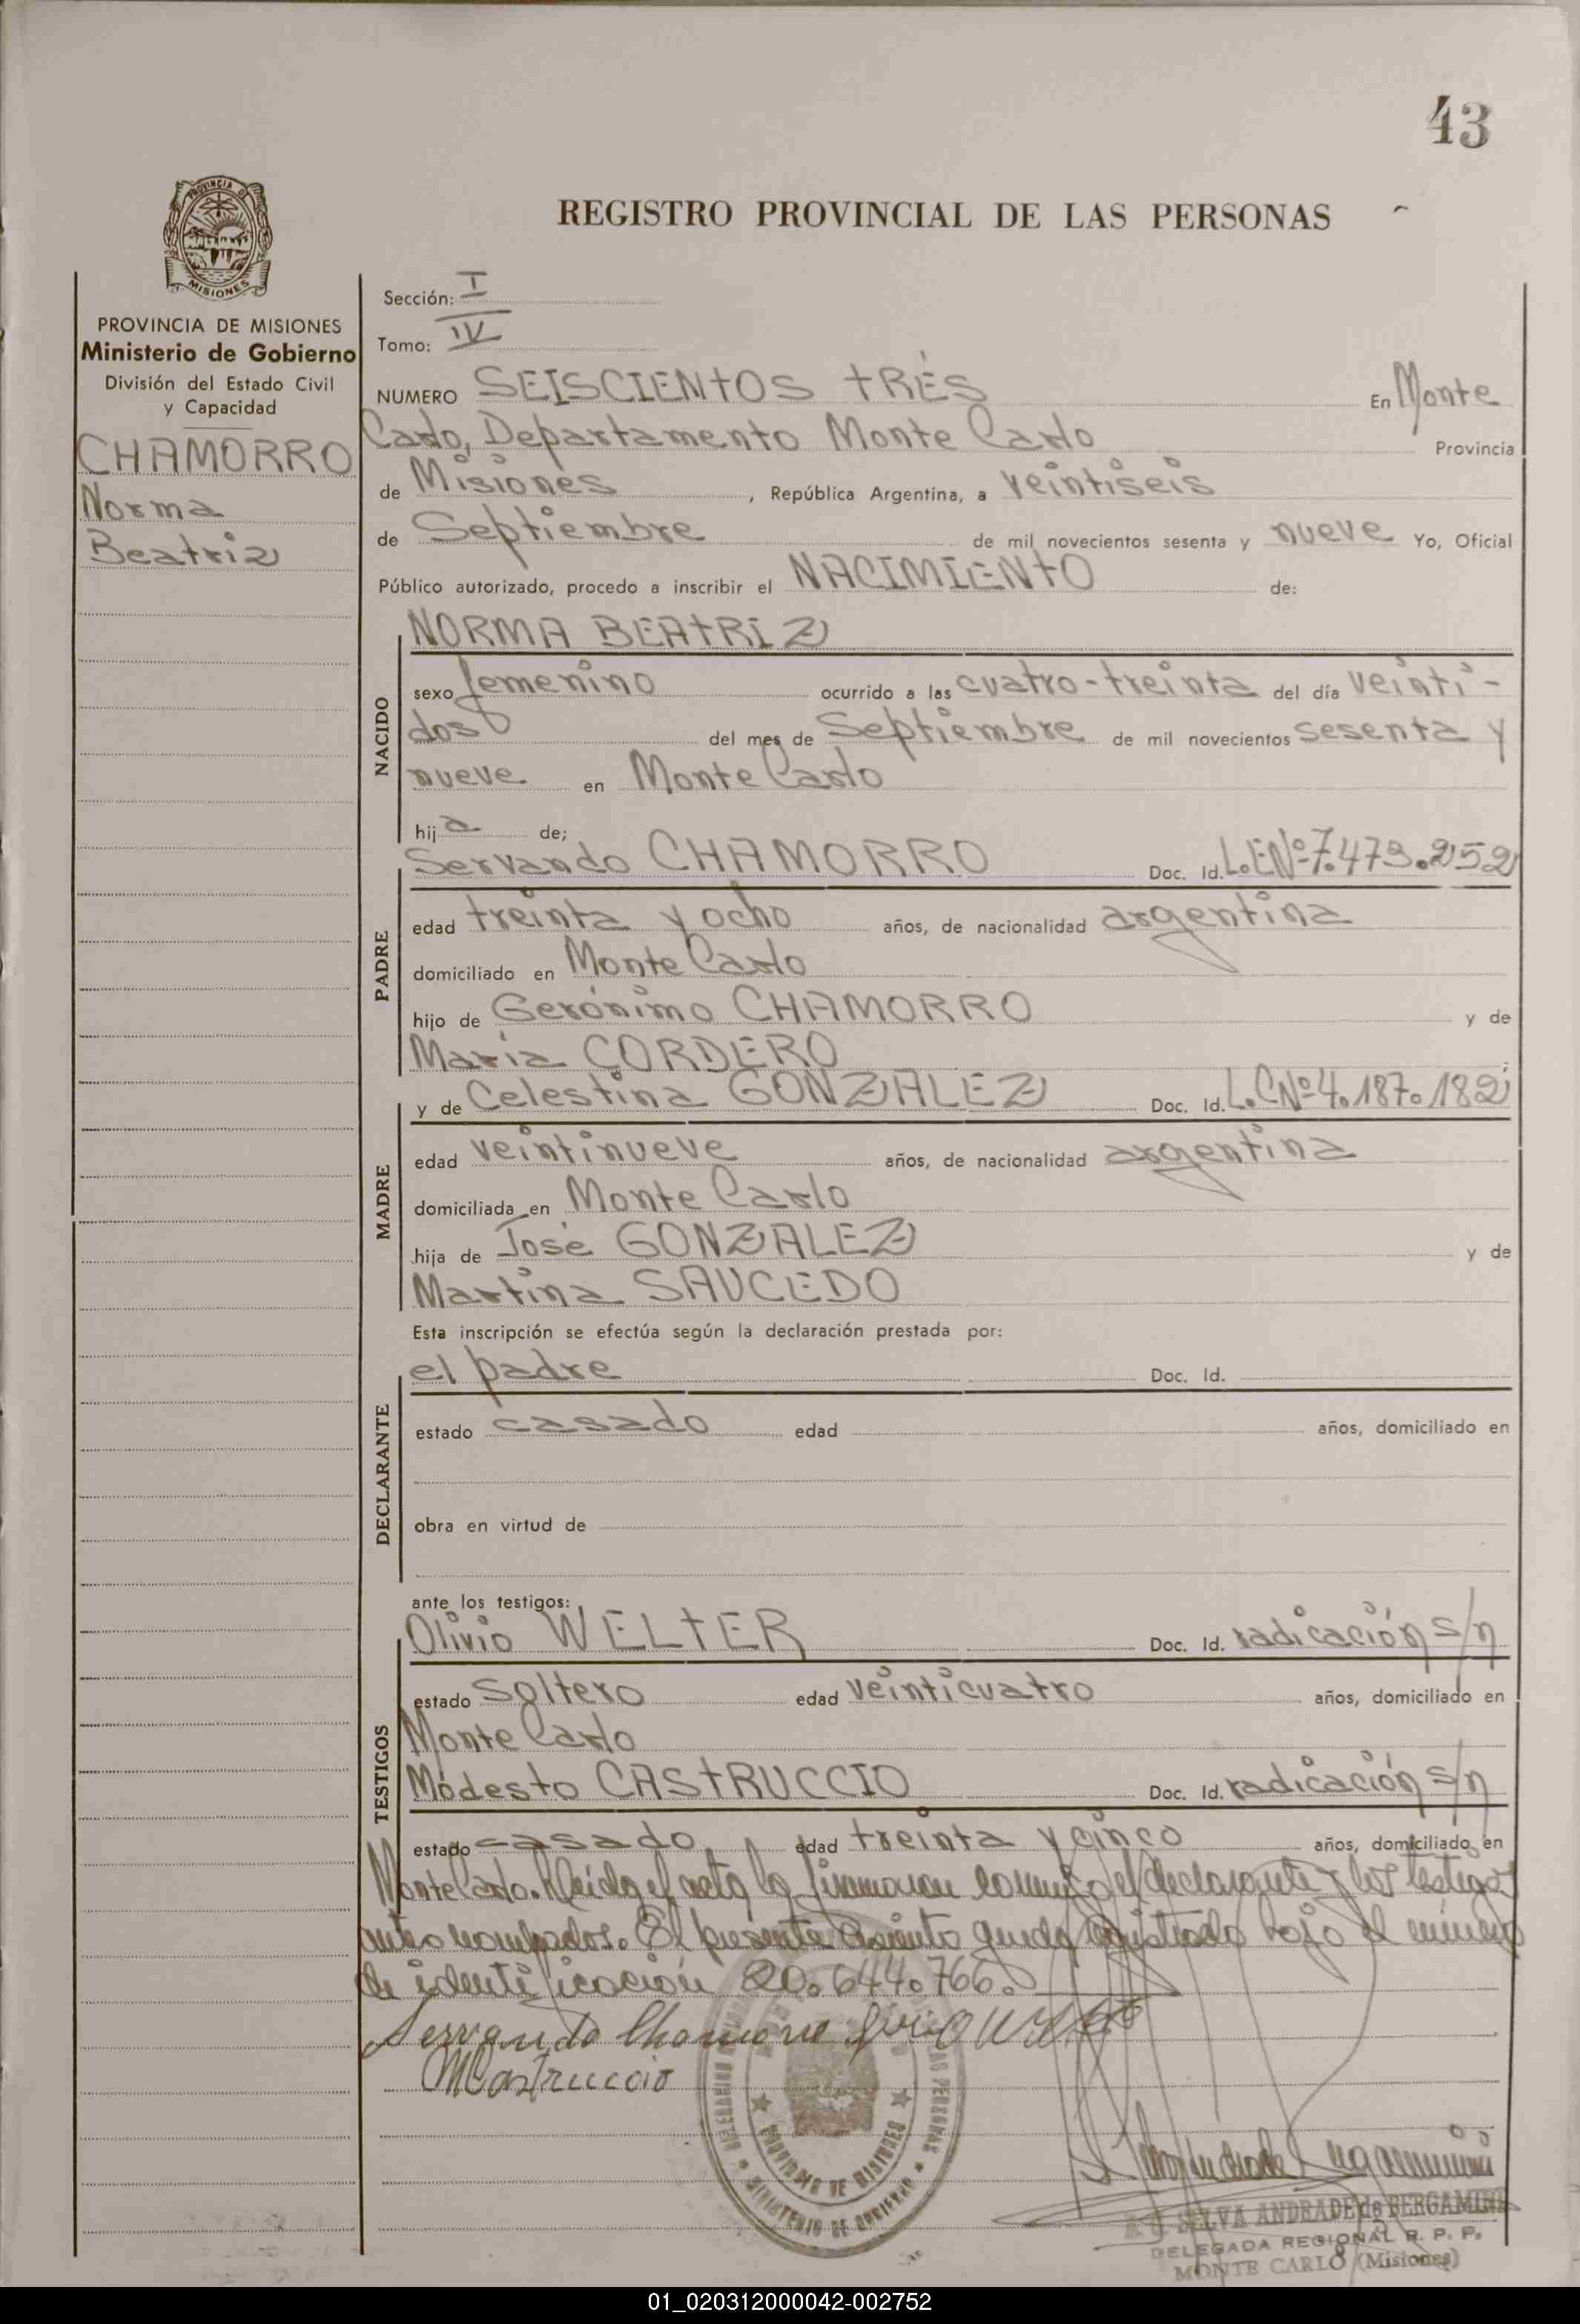 43
PROVINCIA DE
MISIONES
REGISTRO PROVINCIAL DE LAS PERSONAS
PROVINCIA DE MISIONES
Ministerio de Gobierno
División del Estado Civil
y Capacidad
CHAMORRO
Norma
Beatriz
Sección: I
Tomo: IV
NUMERO SEISCIENTOS TRES En Monte
Carlo, Departamento Monte Carlo Provincia
de Misiones, República Argentina, a veintiseis
de Septiembre de mil novecientos sesenta y nueve Yo, Oficial
Público autorizado, procedo a inscribir el NACIMIENTO de:
NORMA BEATRIZ
NACIDO
sexo femenino ocurrido a las cuatro-treinta del día veinti-
dos del mes de Septiembre de mil novecientos sesenta y
nueve en Monte Carlo
hija de;
Servando CHAMORRO Doc. Id. L.E.Nº 7.473.252
PADRE
edad treinta y ocho años, de nacionalidad argentina
domiciliado en Monte Carlo
hijo de Gerónimo CHAMORRO y de
María CORDERO
y de Celestina GONZALEZ Doc. Id. L.C.Nº 4.187.182
MADRE
edad veintinueve años, de nacionalidad argentina
domiciliada en Monte Carlo
hija de José GONZALEZ y de
Martina SAUCEDO
Esta inscripción se efectúa según la declaración prestada por:
el padre Doc. Id.
DECLARANTE
estado casado edad años, domiciliado en
obra en virtud de
ante los testigos:
Olivio WELTER Doc. Id. radicación s/n
TESTIGOS
estado soltero edad veinticuatro años, domiciliado en
Monte Carlo
Modesto CASTRUCCIO Doc. Id. radicación s/n
estado casado edad treinta y cinco años, domiciliado en
Monte Carlo. Leída el acta la firmaron conmigo el declarante y los testigos
antes nombrados. El presente asiento queda registrado bajo el número
de identificación 20.644.766.
Servando Chamorro
MCastruccio
PROVINCIA DE MISIONES
MINISTERIO DE GOBIERNO
SELVA ANDRADE de BERGAMINI
DELEGADA REGIONAL R. P. P.
MONTE CARLO (Misiones)
01_020312000042-002752